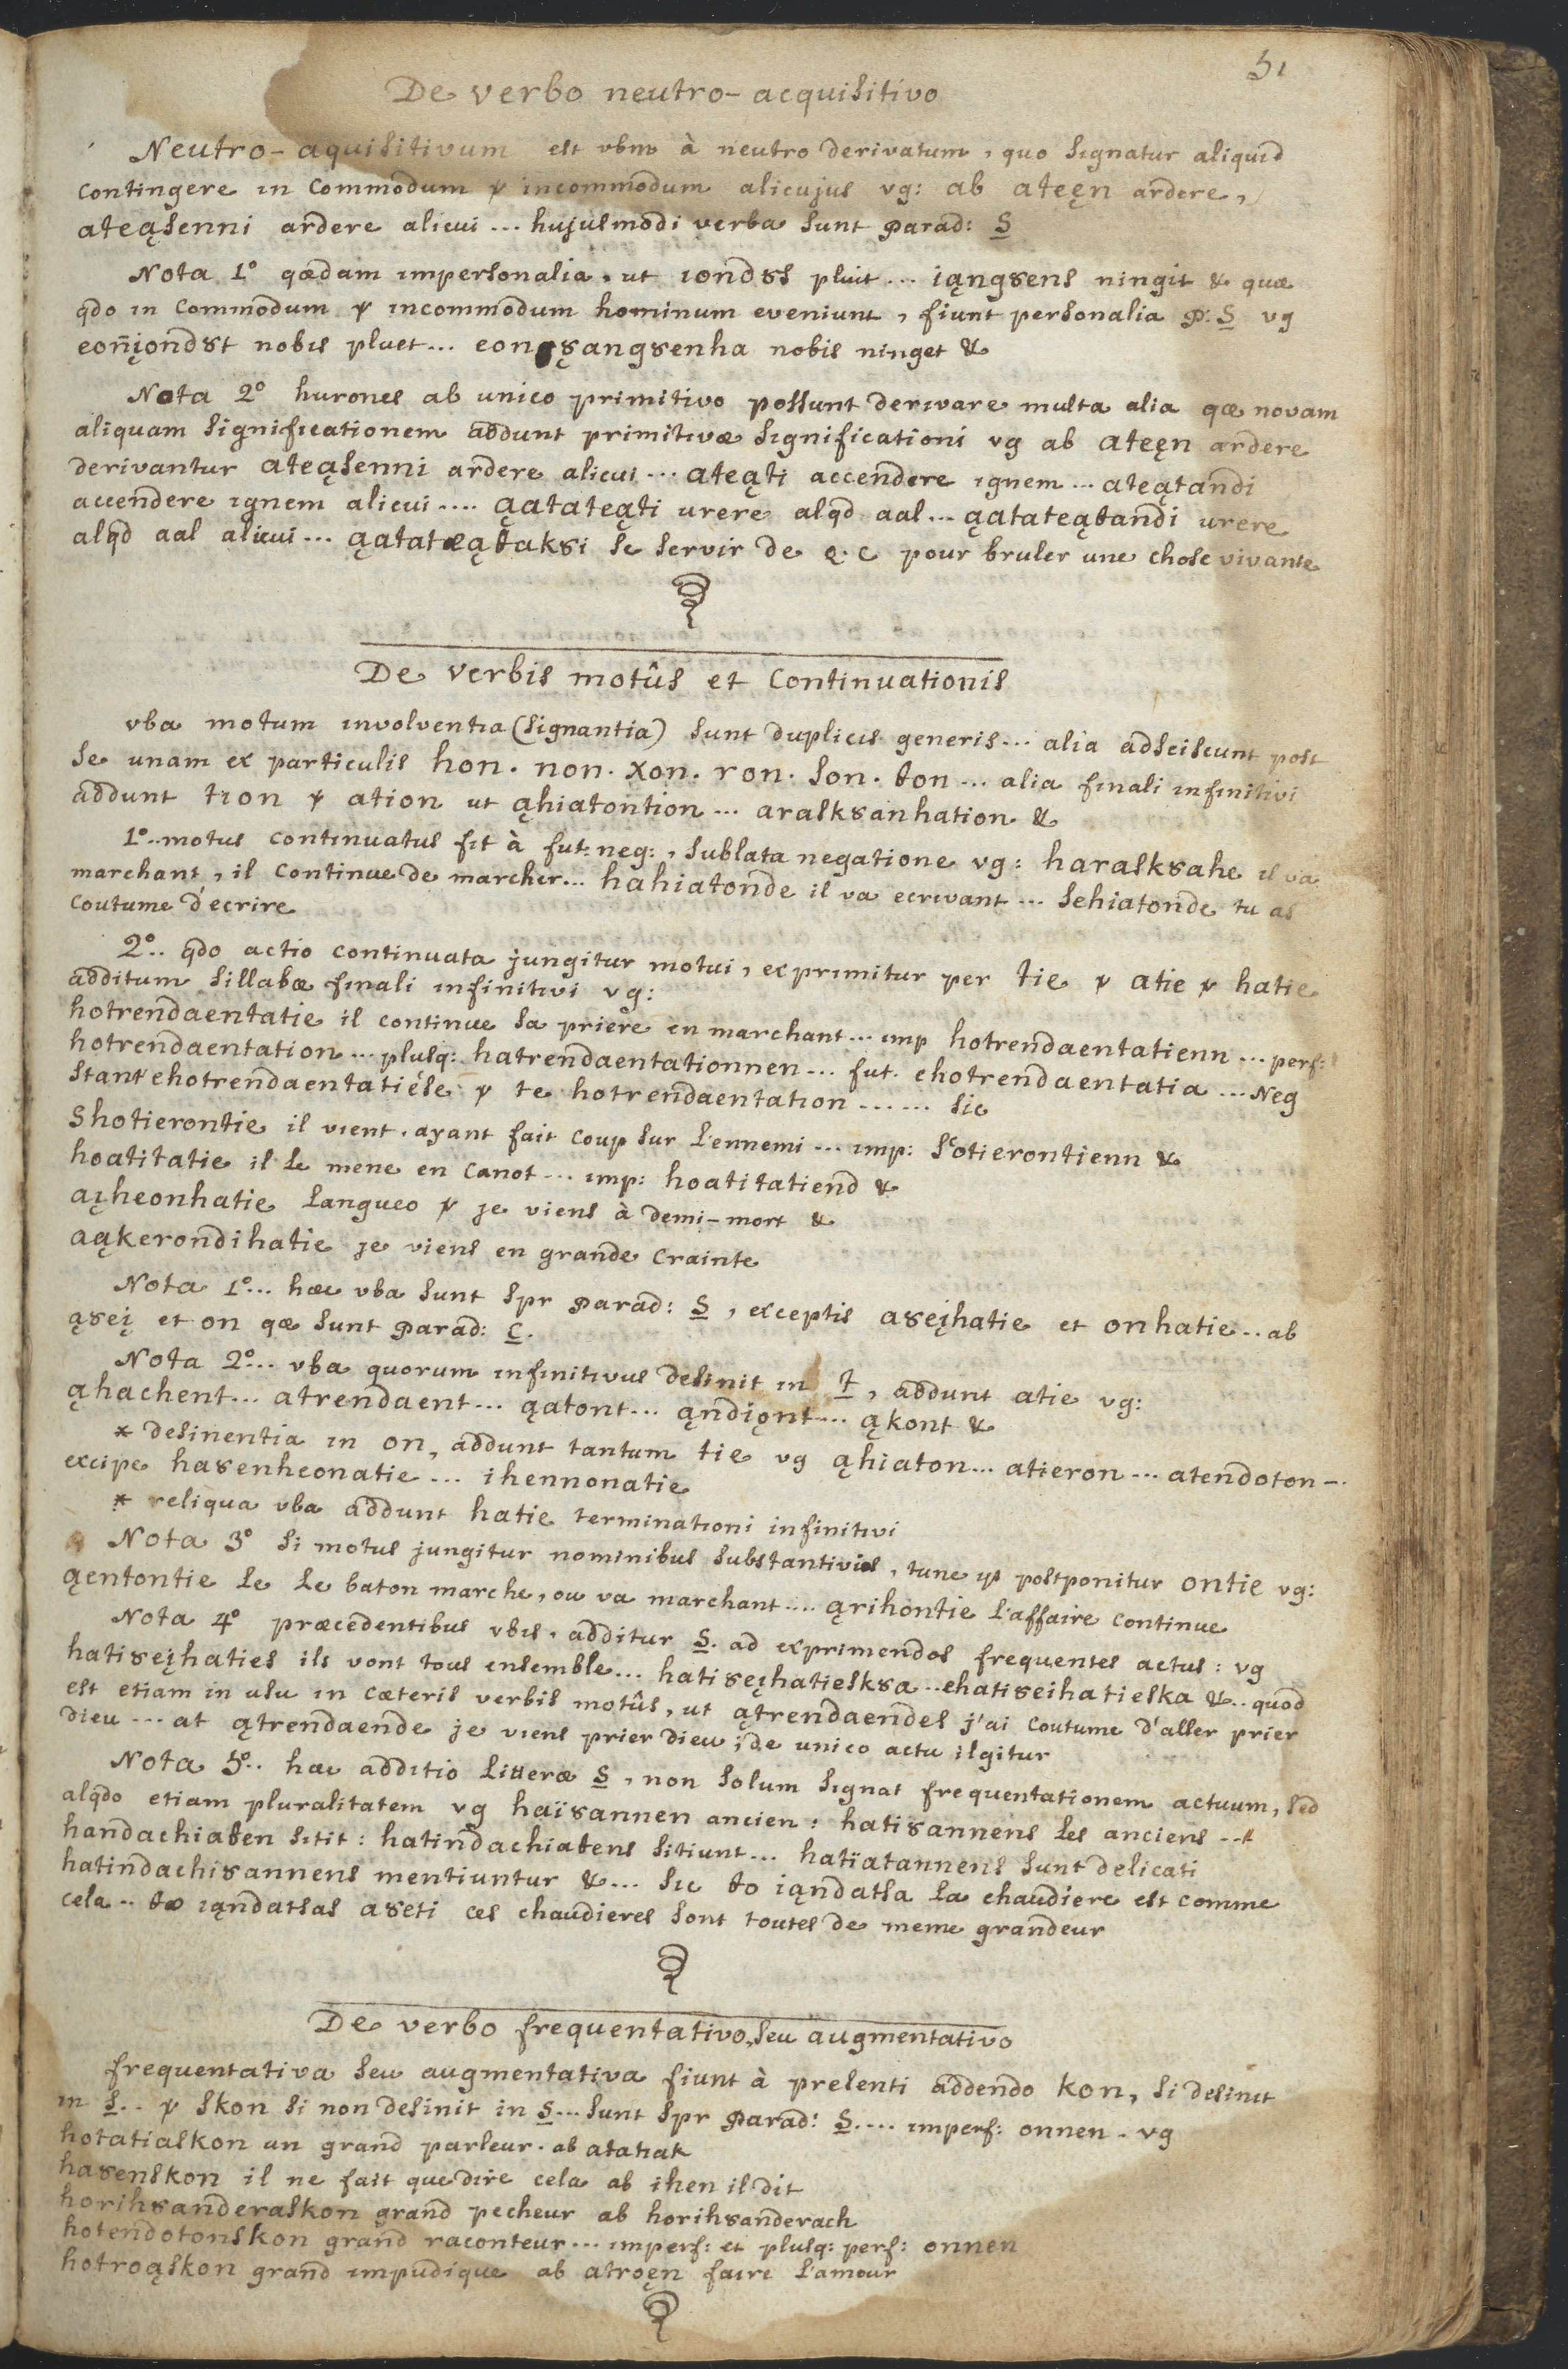 51
De verbo neutro-acquisitivo
Neutro-aquisitivum est vbm à neutro derivatum, quo signatur aliquid
contingere in commodum v incommodum alicujus vg: ab ateęn ardere,
ateąsenni ardere alicui... hujusmodi verba sunt parad: S
Nota 1° qædam impersonalia, ut iondȣs pluit... iąngȣens ningit & quæ
qdo in commodum v incommodum hominum eveniunt, fiunt personalia p: S vg
eoñįondȣt nobis pluet... nobis ninget &
Nota 2° hurones ab unico primitivo possunt derivare multa alia qæ novam
aliquam significationem addunt primitivæ significationi vg ab ateęn ardere
derivantur ateąsenni ardere alicui... ateąti accendere ignem... ateątandi
accendere ignem alicui.... ąatateąti urere alqd aal... ąatateąθandi urere
alqd aal alicui... ąatateąθakȣi se servir de q.c pour bruler une chose vivante
De verbis motûs et continuationis
vba motum involventia (signantia) sunt duplicis generis... alia adsciscunt post
se unam ex particulis hon. non. χon. ron. son. θon... alia finali infinitivi
addunt tion v ation ut ąhiatontion... araskȣanhation &
1°.. motus continuatus fit à fut: neg:, sublata negatione vg: haraskȣahe il va
marchant, il continue de marcher... hahiatonde il va ecrivant... sehiatonde tu as
coutume d'ecrire
2°.. qdo actio continuata jungitur motui, exprimitur per tie v atie v hatie
additum sillabæ finali infinitivi vg:
hotrendaentatie il continue sa priere en marchant... imp hotrendaentatienn... perf:
hotrendaentation... plusq: hatrendaentationnen... fut. ehotrendaentatia... Neg
stantehotrendaentatiése v te hotrendaentation...... sic
shotierontie il vient, ayant fait coup sur l'ennemi... imp: s'otierontienn &
hoatitatie il le mene en canot... imp: hoatitatiend &
aįheonhatie langueo v je viens à demi-mort &
aąkerondihatie je viens en grande crainte
Nota 1°... hæc vba sunt spr parad: S, exceptis aȣeįhatie et onhatie.. ab
ąȣeį et on qæ sunt parad: C.
Nota 2°... vba quorum infinitivus desinit in t, addunt atie vg:
ąhachent... atrendaent... ąatont... ąndiǫnt... ąkont &
* desinentia in on, addunt tantum tie vg ąhiaton... atieron... atendoton-.
excipe haȣenheonatie... ihennonatie
* reliqua vba addunt hatie terminationi infinitivi
Nota 3° si motus jungitur nominibus substantivis, tunc postponitur ontie vg:
ąentontie le le baton marche, ou va marchant.... ąrihontie l'affaire continue
Nota 4° præcedentibus vbis, additur S. ad exprimendos frequentes actus: vg
hatiȣeįhaties ils vont tous ensemble... hatiȣeįhatieskȣa.. ehatiȣeihatieska &.. quod
est etiam in usu in cæteris verbis motûs, ut ątrendaendes j'ai coutume d'aller prier
dieu... at ątrendaende je viens prier dieu; de unico actu igitur
Nota 5°.. hæc additio litteræ S, non solum signat frequentationem actuum, sed
alqdo etiam pluralitatem vg haïȣannen ancien: hatiȣannens les anciens...
handachiaθen sitit: hatindachiaθens sitiunt... hatïatannens sunt delicati
hatindachiȣannens mentiuntur &... sic θo iąndatsa la chaudiere est comme
cela.. θo iąndatsas aȣeti ces chaudieres sont toutes de meme grandeur
De verbo frequentativo, seu augmentativo
frequentativa seu augmentativa fiunt à presenti addendo kon, si desinit
in S.. v skon si non desinit in S... sunt spr parad: S.... imperf: onnen. vg
hotatiaskon un grand parleur. ab atatiak
haȣenskon il ne fait que dire cela ab ihen il dit
horihȣanderaskon grand pecheur ab horihȣanderach
hotendotonskon grand raconteur... imperf: et plusq: perf: onnen
hotroąskon grand impudique ab atroęn faire l'amour